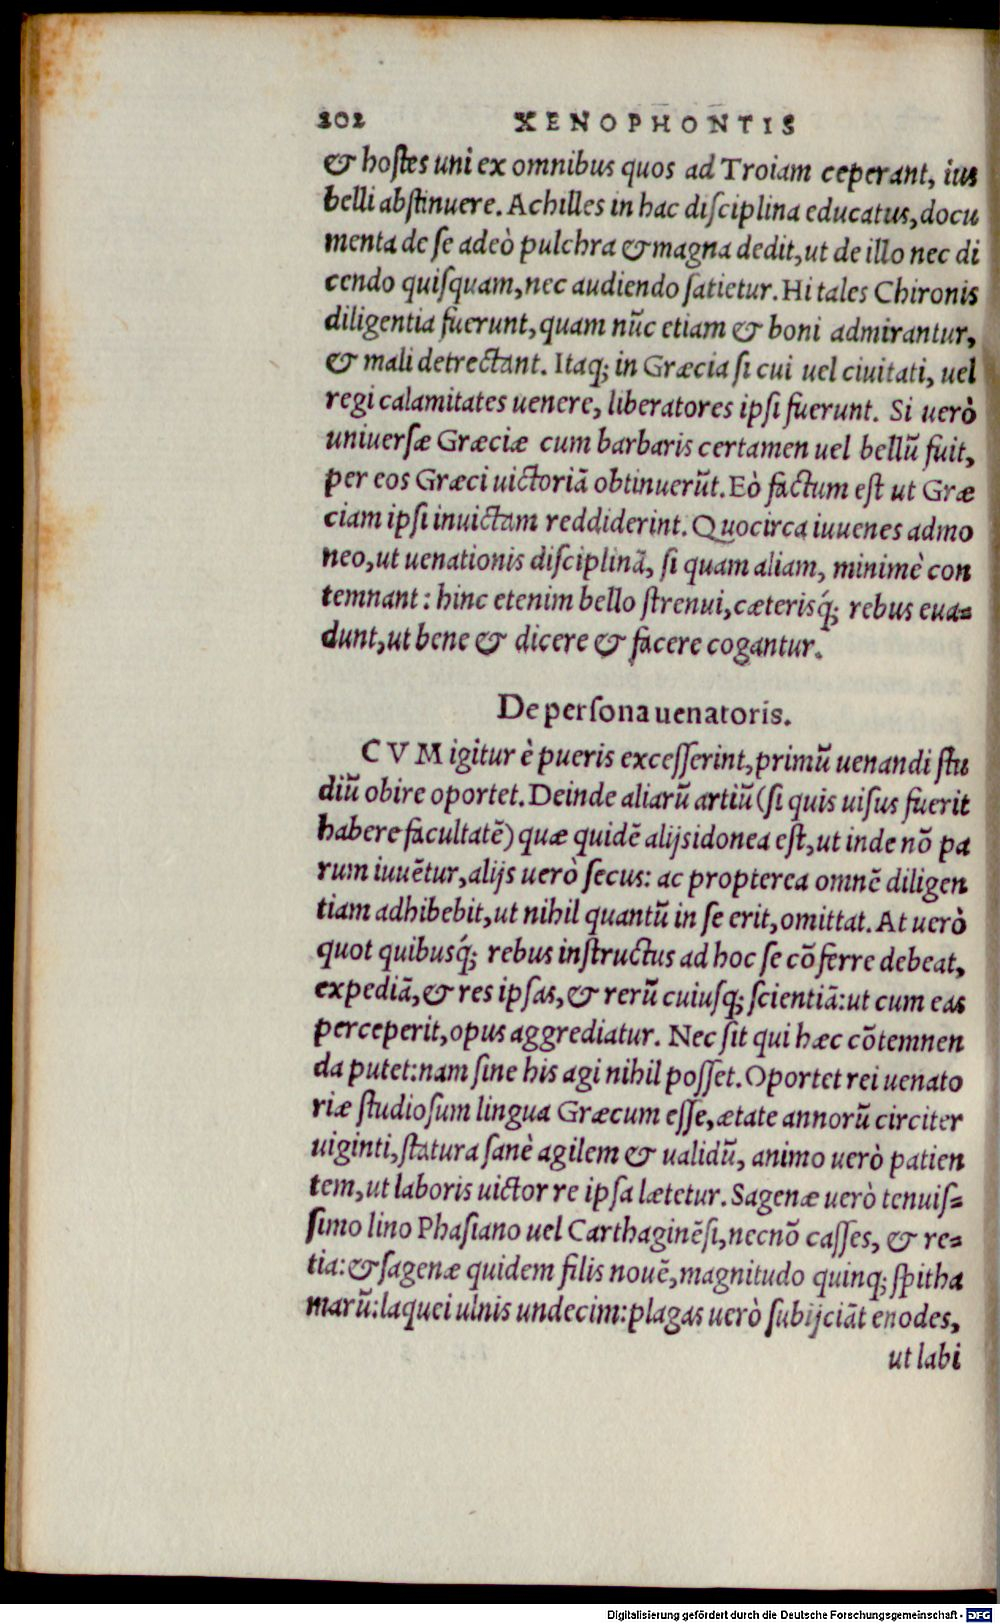 202 XENOPHONTIS
& hoſtes uni ex omnibus quos ad Troiam ceperant, ius
belli abſtinuere. Achilles in hac diſciplina educatus, docu
menta de ſe adeò pulchra & magna dedit, ut de illo nec di
cendo quiſquam, nec audiendo ſatietur. Hi tales Chironis
diligentia fuerunt, quam nũc etiam & boni admirantur,
& mali detrectant. Itaq; in Græcia ſi cui uel ciuitati, uel
regi calamitates uenere, liberatores ipſi fuerunt. Si uerò
uniuerſæ Græciæ cum barbaris certamen uel bellũ fuit,
per eos Græci uictoriã obtinuerũt. Eò factum eſt ut Græ
ciam ipſi inuictam reddiderint. Quocirca iuuenes admo
neo, ut uenationis diſciplinã, ſi quam aliam, minimè con
temnant: hinc etenim bello ſtrenui, cæterisq́; rebus eua=
dunt, ut bene & dicere & facere cogantur.
De perſona uenatoris.
CVM igitur è pueris exceſſerint, primũ uenandi ſtu
diũ obire oportet. Deinde aliarũ artiũ (ſi quis uiſus fuerit
habere facultatẽ) quæ quidẽ alijs idonea eſt, ut inde nõ pa
rum iuuẽtur, alijs uerò ſecus: ac propterea omnẽ diligen
tiam adhibebit, ut nihil quantũ in ſe erit, omittat. At uerò
quot quibusq́; rebus inſtructus ad hoc ſe cõferre debeat,
expediã, & res ipſas, & rerũ cuiuſq; ſcientiã: ut cum eas
perceperit, opus aggrediatur. Nec ſit qui hæc cõtemnen
da putet: nam ſine his agi nihil poſſet. Oportet rei uenato
riæ ſtudioſum lingua Græcum eſſe, ætate annorũ circiter
uiginti, ſtatura ſanè agilem & ualidũ, animo uerò patien
tem, ut laboris uictor re ipſa lætetur. Sagenæ uerò tenuiſ=
ſimo lino Phaſiano uel Carthaginẽſi, necnõ caſſes, & re=
tia: & ſagenæ quidem filis nouẽ, magnitudo quinq; ſpitha
marũ: laquei ulnis undecim: plagas uerò ſubijciãt enodes,
ut labi
Digitalisierung gefördert durch die Deutsche Forschungsgemeinschaft - DFG